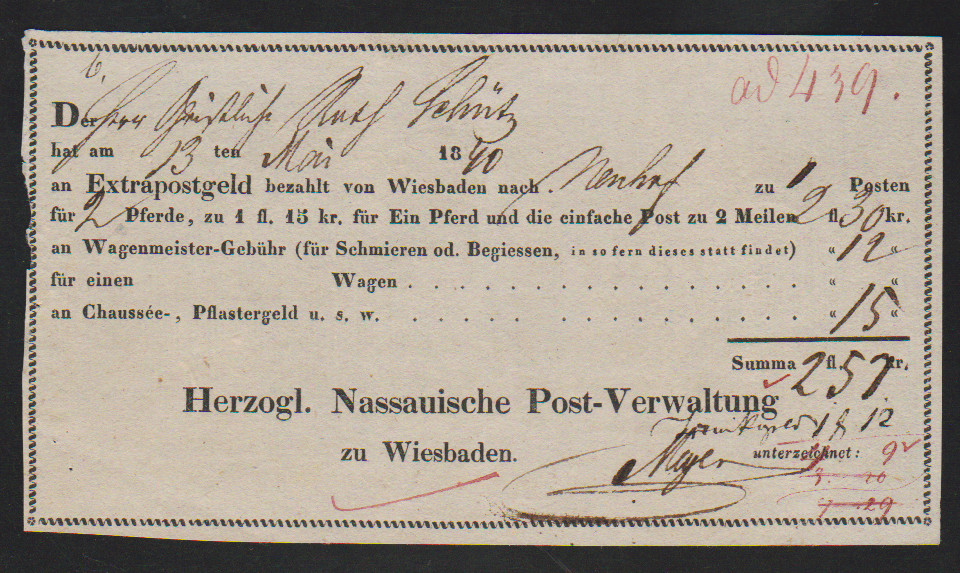 6.
ad 439.
Der Herr Geistliche Rath Schütz
hat am 13 ten Mai 1840
an Extrapostgeld bezahlt von Wiesbaden nach Neuhof zu 1 Posten
für 2 Pferde, zu 1 fl. 15 kr. für Ein Pferd und die einfache Post zu 2 Meilen 2 fl. 30 kr.
an Wagenmeister-Gebühr (für Schmieren od. Begiessen, in so fern dieses statt findet) “ 12 “
für einen Wagen . . . . . . . . . . . . . . . . “ “
an Chaussée-, Pflastergeld u. s. w. . . . . . . . . . . . . . . “ 15 “
Summa 2 fl. 57 kr.
Herzogl. Nassauische Post-Verwaltung
Trinkgeld 1 f 12
zu Wiesbaden. Meyer unterzeichnet: 9
3. 20
7 29